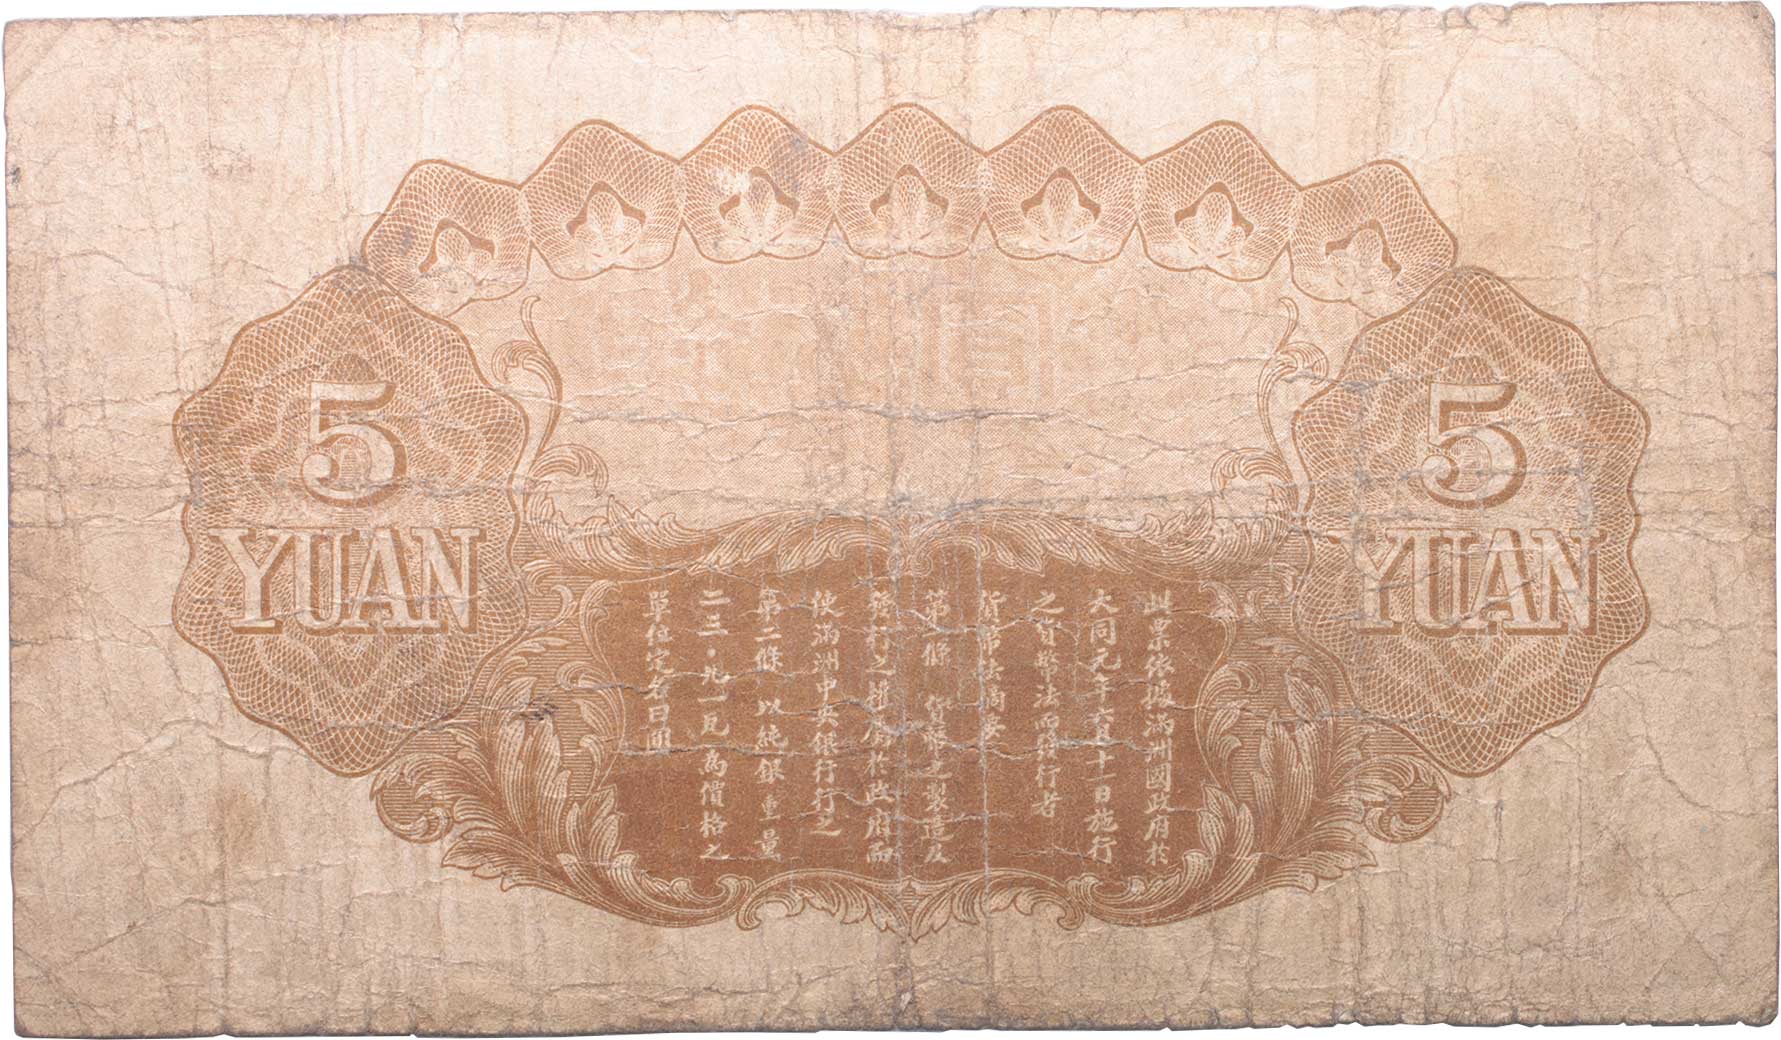 5
YUAN
5
YUAN
此票依據滿洲國政府於
大同元年六月十一日施行
之貨幣法而發行者
貨幣法摘要
第一條 貨幣之製造及
發行之權屬於政府而
使滿洲中央銀行行之
第二條 以純銀重量
二三・九一瓦為價格之
單位定名曰圓